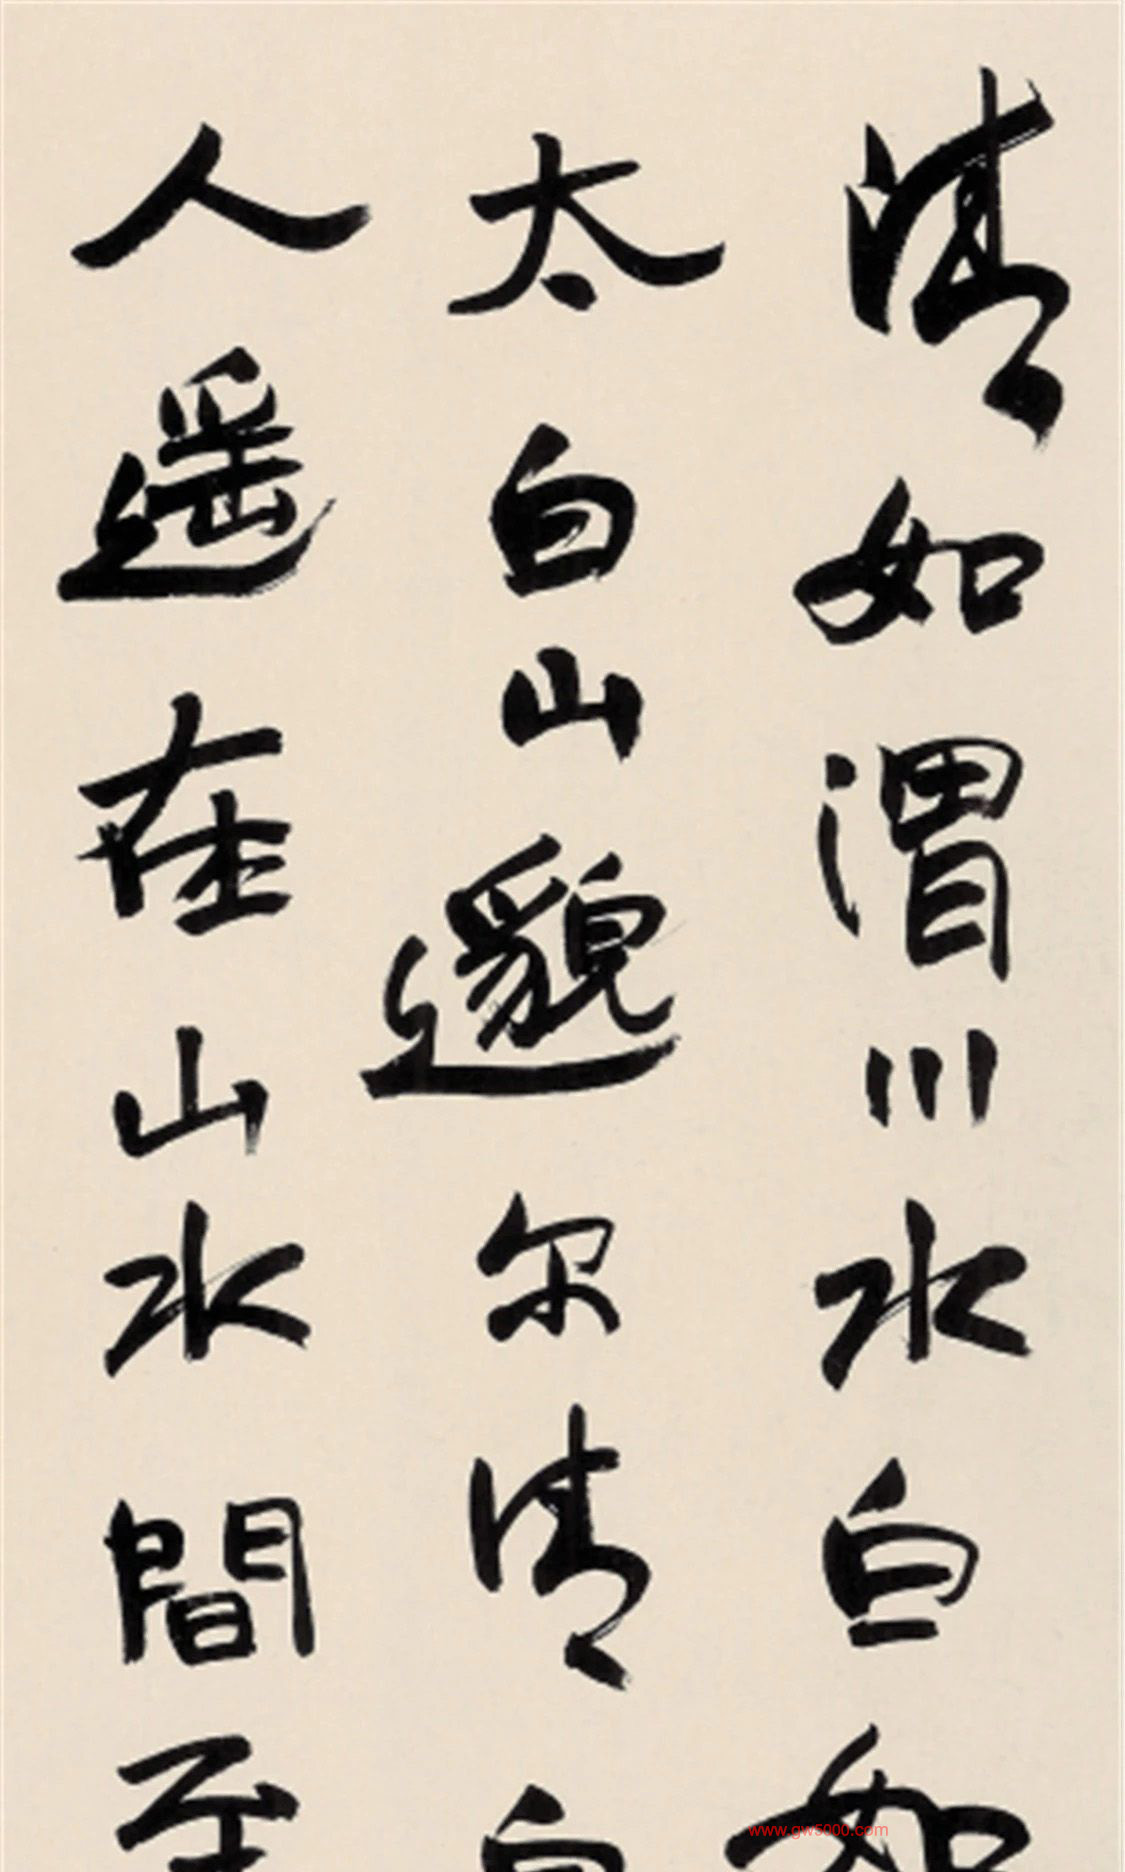 清如渭川水白如
太白山邈尔清白
人遥在山水間至
www.gw5000.com